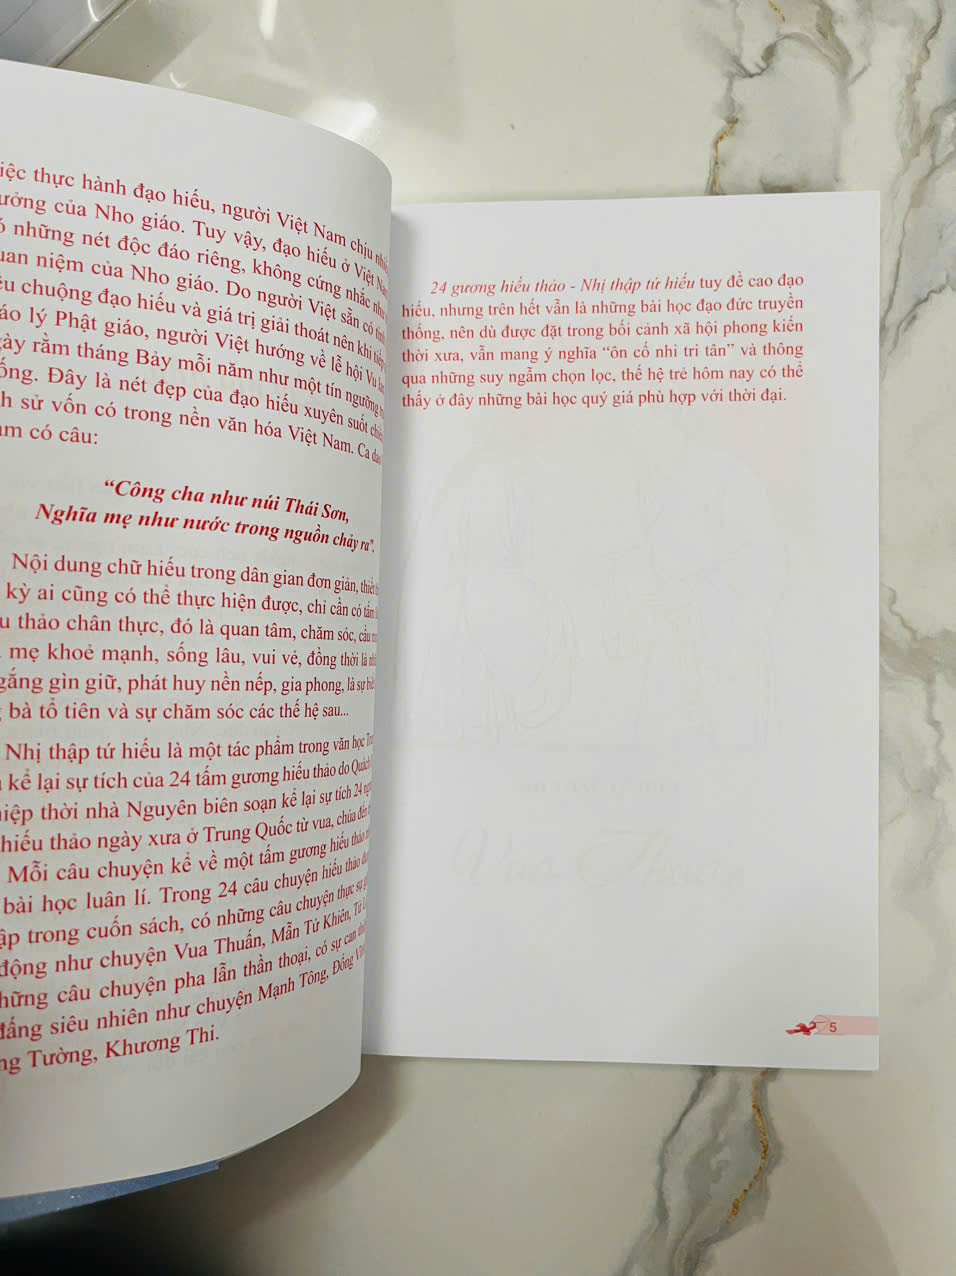 thực hành đạo hiếu, người Việt Nam chịu
của Nho giáo. Tuy vậy, đạo hiếu ở Việt Nam
những nét độc đáo riêng, không cứng nhắc như
niệm của Nho giáo. Do người Việt sẵn có
chuộng đạo hiếu và giá trị giải thoát nên khi
lý Phật giáo, người Việt hướng về lễ hội Vu
rằm tháng Bảy mỗi năm như một tín ngưỡng
Đây là nét đẹp của đạo hiếu xuyên suốt
sử vốn có trong nền văn hóa Việt Nam. Ca dao
có câu:
“Công cha như núi Thái Sơn,
Nghĩa mẹ như nước trong nguồn chảy ra".
Nội dung chữ hiếu trong dân gian đơn giản, thiết
kỳ ai cũng có thể thực hiện được, chỉ cần có tấm
thảo chân thực, đó là quan tâm, chăm sóc, cầu
mẹ khoẻ mạnh, sống lâu, vui vẻ, đồng thời là
gắng gìn giữ, phát huy nền nếp, gia phong, là sự
bà tổ tiên và sự chăm sóc các thế hệ sau...
Nhị thập tứ hiếu là một tác phẩm trong văn học
kể lại sự tích của 24 tấm gương hiếu thảo do Quách
thời nhà Nguyên biên soạn kể lại sự tích 24
hiếu thảo ngày xưa ở Trung Quốc từ vua, chúa đến
Mỗi câu chuyện kể về một tấm gương hiếu thảo
bài học luân lí. Trong 24 câu chuyện hiếu thảo
trong cuốn sách, có những câu chuyện thực sự
động như chuyện Vua Thuấn, Mẫn Tử Khiên, Tử
những câu chuyện pha lẫn thần thoại, có sự can
đấng siêu nhiên như chuyện Mạnh Tông, Đổng
Tường, Khương Thi.
24 gương hiếu thảo - Nhị thập tứ hiếu tuy đề cao đạo
hiếu, nhưng trên hết vẫn là những bài học đạo đức truyền
thống, nên dù được đặt trong bối cảnh xã hội phong kiến
thời xưa, vẫn mang ý nghĩa “ôn cố nhi tri tân” và thông
qua những suy ngẫm chọn lọc, thế hệ trẻ hôm nay có thể
thấy ở đây những bài học quý giá phù hợp với thời đại.
5